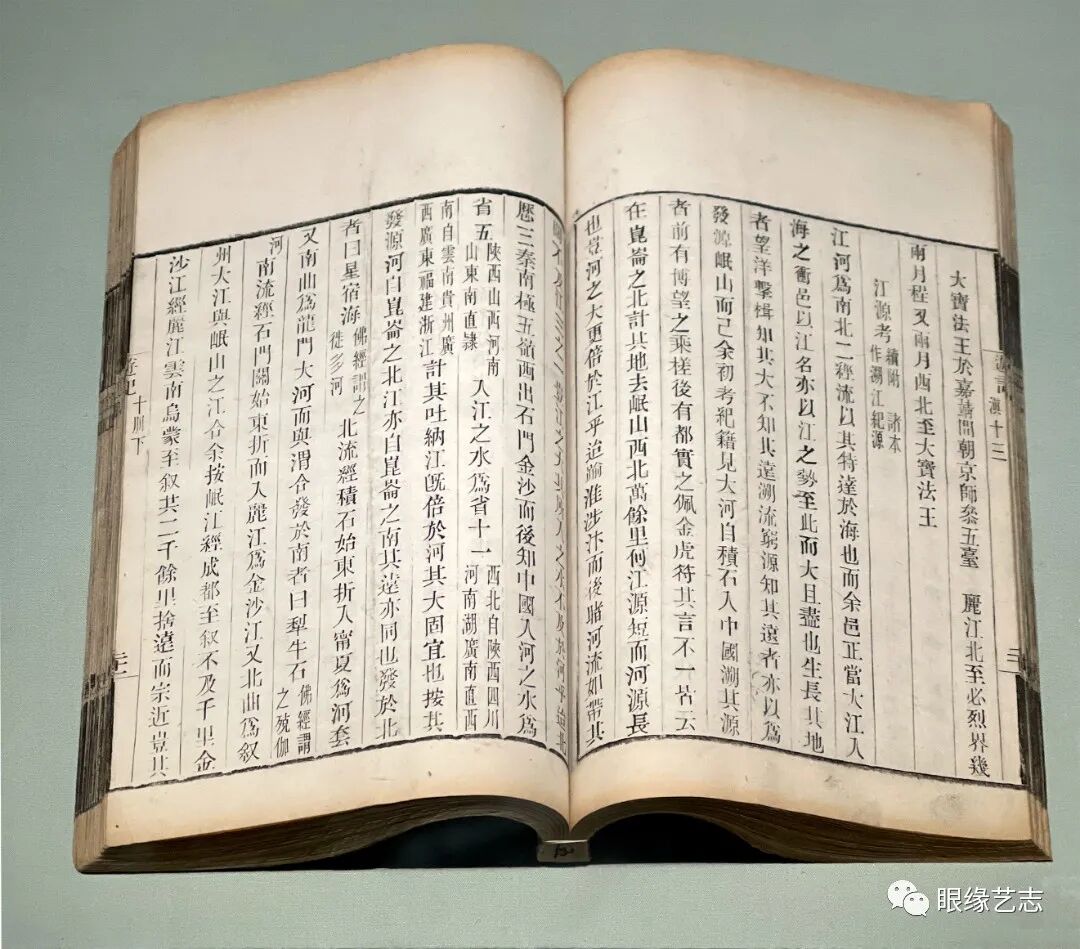 遊記 滇十三
大寶法王於嘉靖間朝京師參五臺 麗江北至必烈界幾
兩月程又兩月西北至大寶法王
江源考 續附 諸本作溯江紀源
江河爲南北二經流以其特達於海也而余邑正當大江入
海之衝邑以江名亦以江之勢至此而大且盡也生長其地
者望洋擊楫知其大不知其遠溯流窮源知其遠者亦以爲
發源岷山而已余初考紀籍見大河自積石入中國溯其源
者前有博望之乘槎後有都實之佩金虎符其言不一皆云
在崑崙之北計其地去岷山西北萬餘里何江源短而河源長
也豈河之大更倍於江乎迨踰淮涉汴而後睹河流如帶其
歷三秦南極五嶺西出石門金沙而後知中國入河之水爲
省五 陝西山西河南山東南直隸 入江之水爲省十一 西北自陝西四川河南湖廣南直西
南自雲南貴州廣西廣東福建浙江 計其吐納江旣倍於河其大固宜也按其
發源河自崑崙之北江亦自崑崙之南其遠亦同也發於北
者曰星宿海 佛經謂之徙多河 北流經積石始東折入甯夏爲河套
又南曲爲龍門大河而與渭合發於南者曰犁牛石 佛經謂之殑伽
河 南流經石門關始東折而入麗江爲金沙江又北曲爲叙
州大江與岷山之江合余按岷江經成都至叙不及千里金
沙江經麗江雲南烏蒙至叙共二千餘里捨遠而宗近豈其
遊記 十册下
眼缘艺志